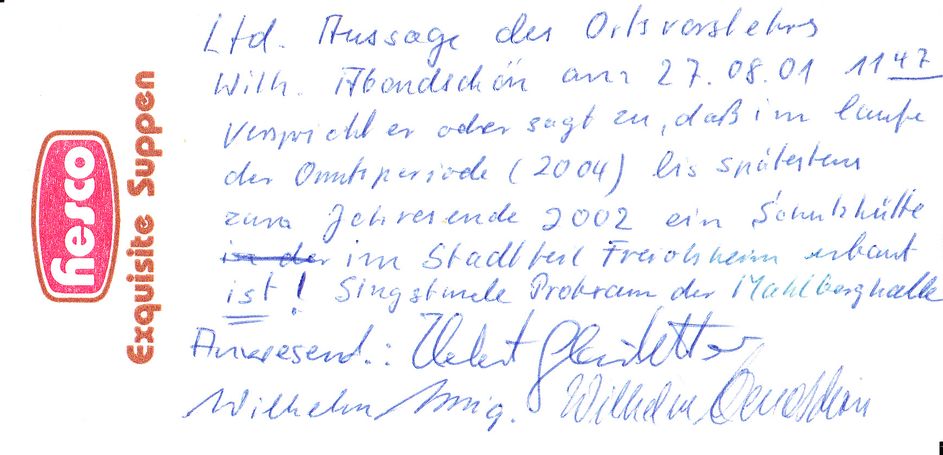 hesco
Exquisite Suppen
Ltd. Aussage des Ortsvorstehers
Wilh. Abendschön am 27.08.01 11 47
Verspricht er oder sagt zu, daß im laufe
der Omtsperiode (2004) bis spätestens
zum Jahresende 2002 ein Schutzhütte
in der im Stadtteil Freiolsheim erbaut
ist! Singstunde Probraum der Mahlberghalle
Anwesend.:
Wilhelm Wilhelm